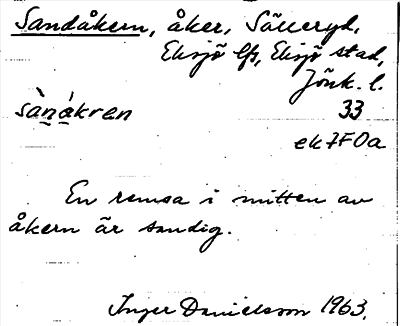 Sandåkern, åker, Sälleryd,
Eksjö lfs, Eksjö stad,
Jönk. l.
sànákren 33
ek7F0a
En remsa i mitten av
åkern är sandig.
Inger Danielsson 1963.